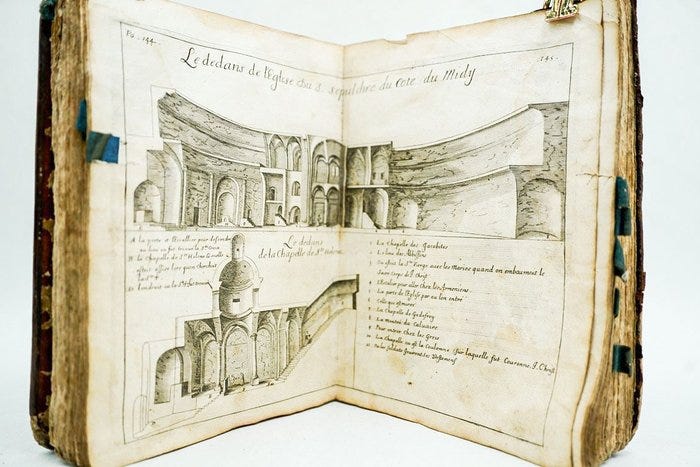 Pag. 144.
145.
Le dedans de l'Eglise du S. Sepulchre du Coté du Midy
A la porte et l'escallier pour descendre
au lieu ou fut trouvée la Ste Croix
la Chapelle de Ste Helene
estoit assise lors quon Cherchoit
Le dedans
de la Chapelle de Ste Helene
La Chapelle des Jacobites
des Abissins
Ou estoit la Ste Vierge avec les Maries quand on embaumoit le
Corps de J. Christ
L'Escalier pour aller Chez les Armeniens
La porte de l'Eglise par ou lon entre
La Chapelle de Godefroy
La montée du Calvaire
Pour entrer chez les Grecs
La Chapelle ou est la Coulomne sur laquelle fut Couronné J. Christ
les Soldats